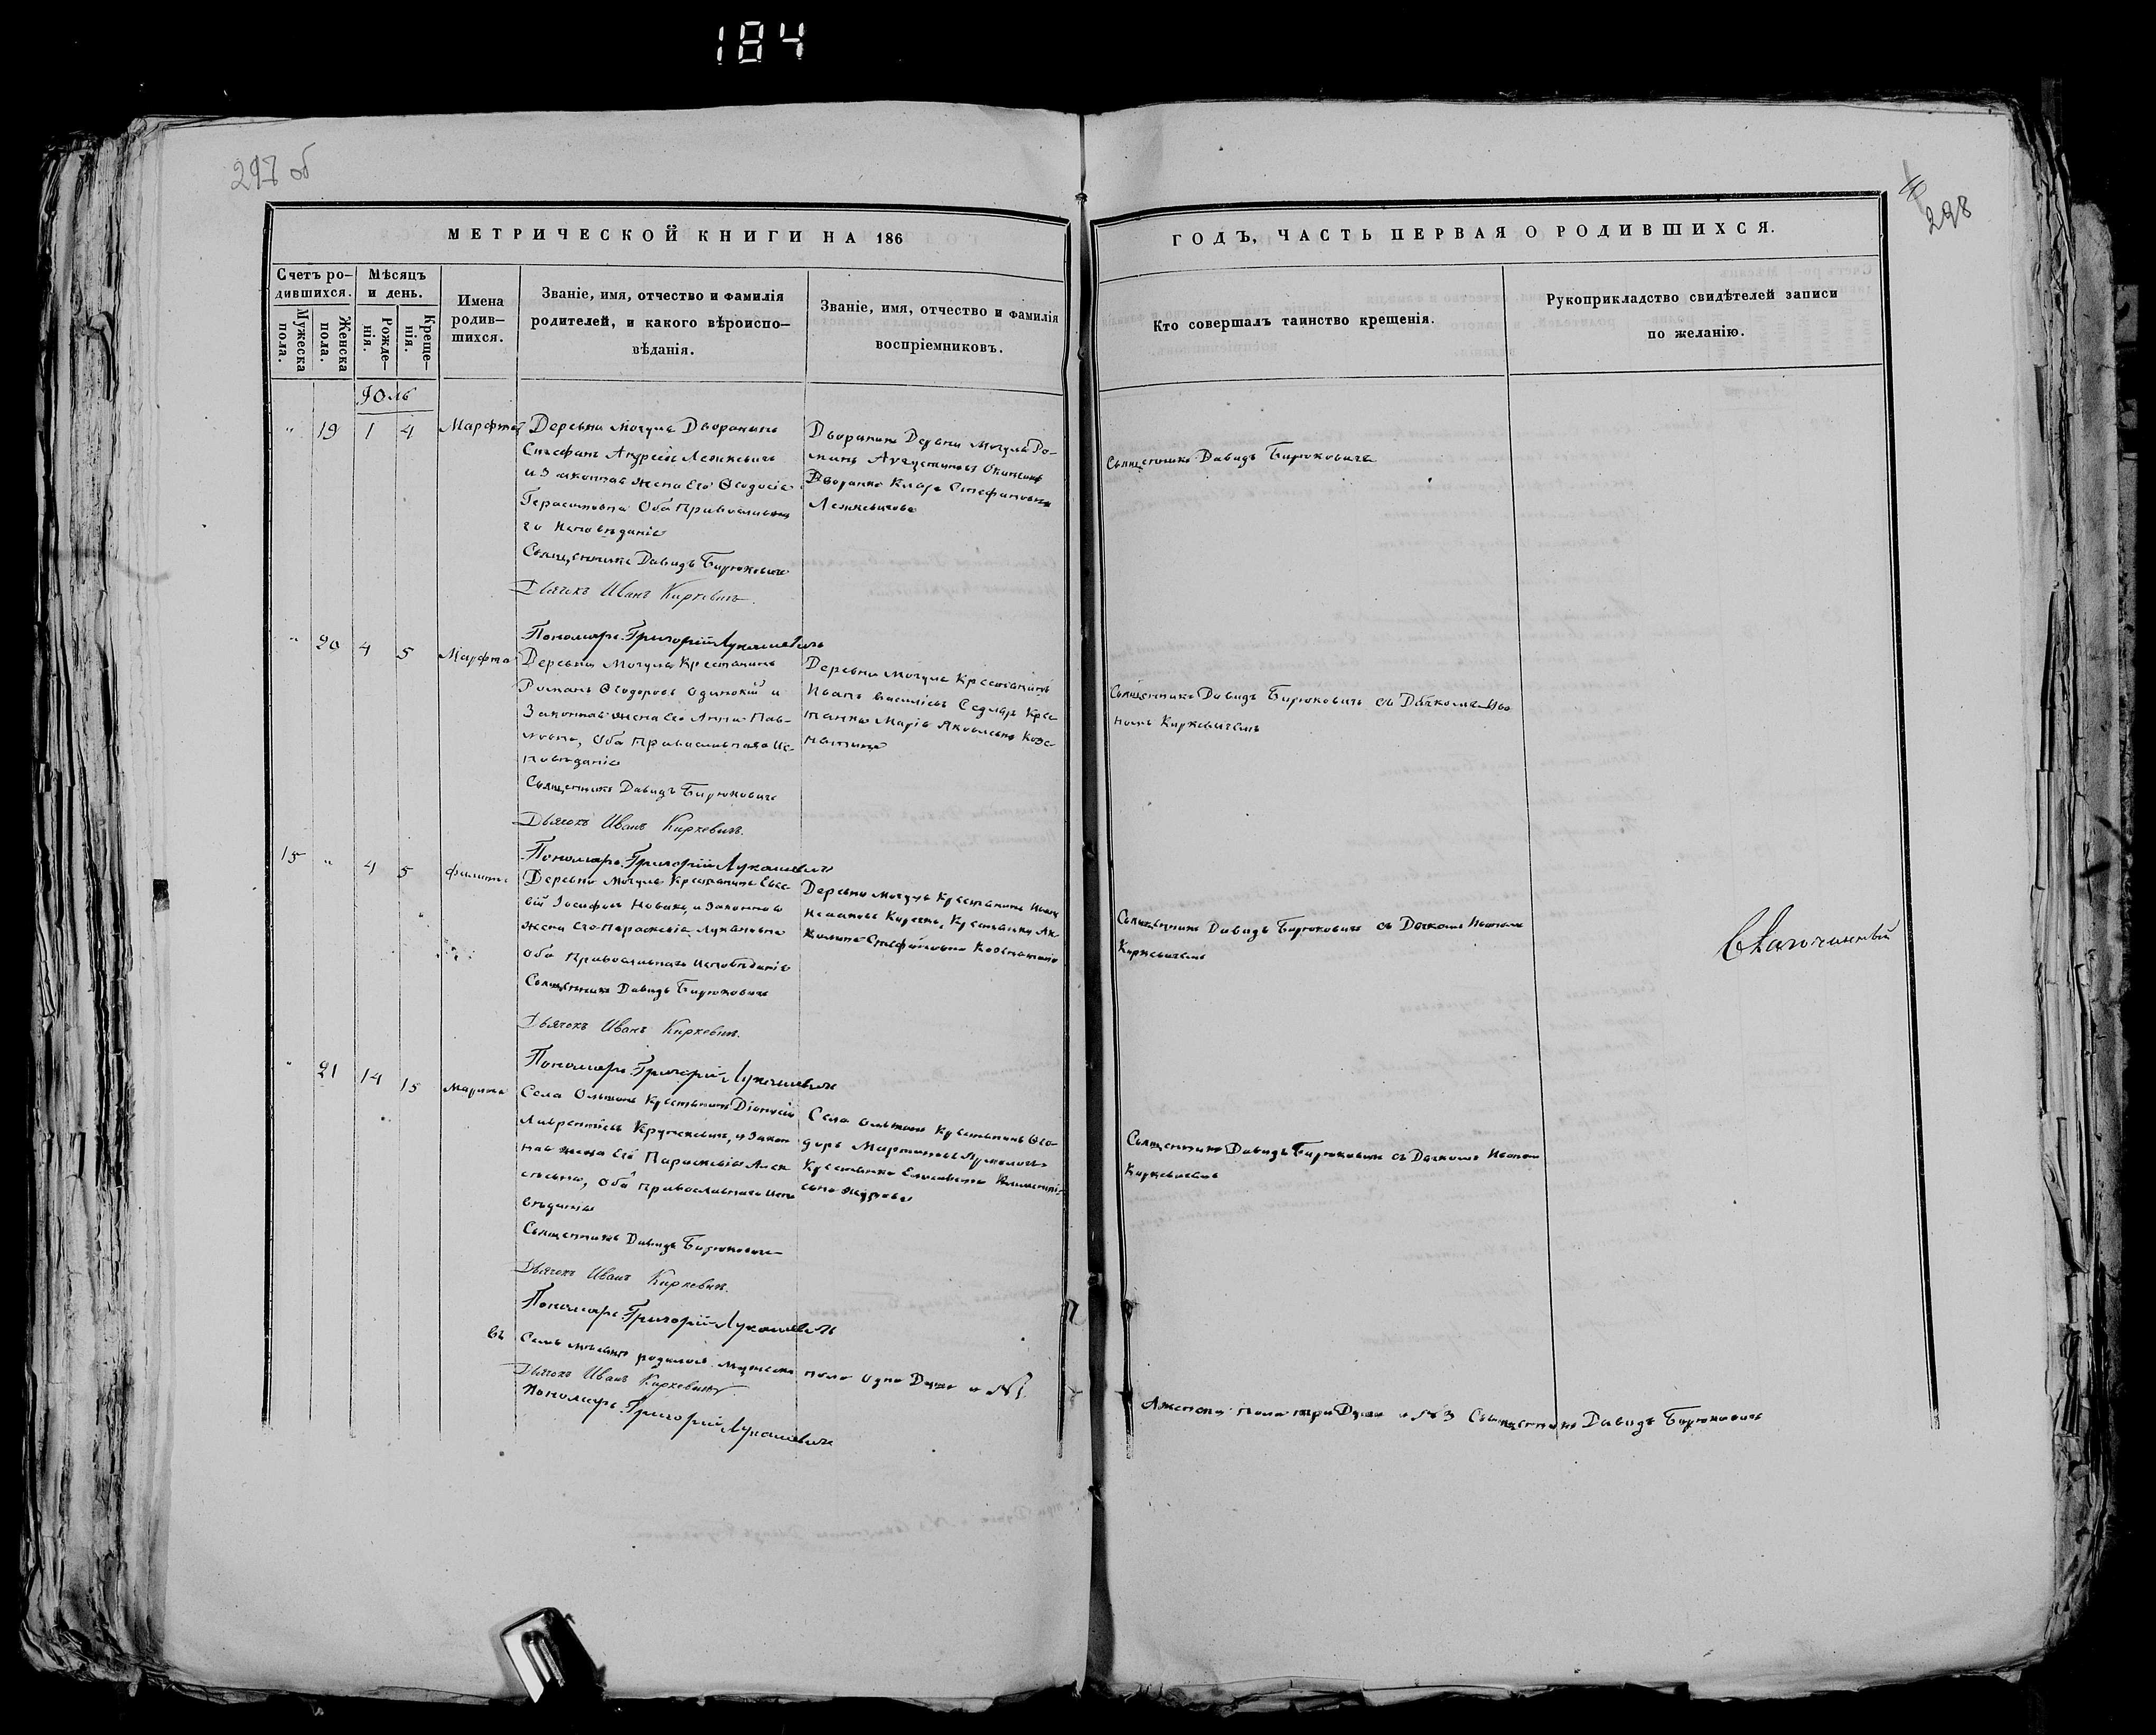 184
297 об
298
МЕТРИЧЕСКОЙ КНИГИ НА 186
ГОДЪ, ЧАСТЬ ПЕРВАЯ О РОДИВШИХСЯ.
Счетъ ро-
дившихся.
Мужеска
пола.
Женска
пола.
Мѣсяцъ
и день.
Рожде-
нія.
Креще-
нія.
Имена
родив-
шихся.
Званіе, имя, отчество и фамилія
родителей, и какого вѣроиспо-
вѣданія.
Званіе, имя, отчество и фамилія
воспріемниковъ.
Кто совершалъ таинство крещенія.
Рукоприкладство свидѣтелей записи
по желанію.
Юль
" 19 1 4 Марфа
Деревни Мочуля Дворанинъ
Стефанъ Андреевъ
и Законная жена Его Ѳеодосія
Герасимовна Оба Православна
го Исповѣданія
Священникъ Давидъ Бирюковичъ
Дьячокъ Иванъ Киркевичъ.
Пономарь Григорій Лукашевичъ
Дворанинъ Деревни Мочуля Ро-
манъ Августиновъ
Дворанка Клара Стефановна
Священникъ Давидъ Бирюковичъ
" 20 4 5 Марфа
Деревни Мочуля Крестанинъ
Романъ Ѳеодоровъ Одинокій и
Законная жена Его Анна Пав-
ловна, Оба Православнаго Ис-
повѣданія
Священникъ Давидъ Бирюковичъ
Дьячокъ Иванъ Киркевичъ.
Пономарь Григорій Лукашевичъ
Деревни Мочуля Крестанинъ
Иванъ Василіевъ Седляръ Крес-
танка Марія Яковлевна
Священникъ Давидъ Бирюковичъ съ Дячкомъ Ива
номъ Киркевичемъ
15 " 4 5 Филипъ
Деревни Мочуля Крестанинъ Евсе-
вій Іосифовъ Новакъ, и Законная
жена Его Параскевія Лукановна
Оба Православнаго Исповѣданія
Священникъ Давидъ Бирюковичъ
Дьячокъ Иванъ Киркевичъ.
Пономарь Григорій Лукашевичъ
Деревни Мочуля Крестанинъ Иванъ
Крестанка Ак-
Стефановна
Священникъ Давидъ Бирюковичъ съ Дячкомъ Иваномъ
Киркевичемъ
" 21 14 15 Марина
Села Ольманъ Крестанинъ Діонисій
Лаврентіевъ и Закон
ная жена Его Параскевія Алек
сѣевна, Оба Православнаго Испо
вѣданія
Священникъ Давидъ Бирюковичъ
Дьячокъ Иванъ Киркевичъ.
Пономарь Григорій Лукашевичъ
Села Ольманъ Крестанинъ Ѳео-
доръ Мартиновъ
Крестанка Елисавета
Священникъ Давидъ Бирюковичъ съ Дячкомъ Иваномъ
Киркевичемъ
Въ Семъ мѣсяцѣ родилось мужеска пола одна Душа и №1
Аженска пола три Души и №3 Священникъ Давидъ Бирюковичъ
Дьячокъ Иванъ Киркевичъ
Пономарь Григорій Лукашевичъ